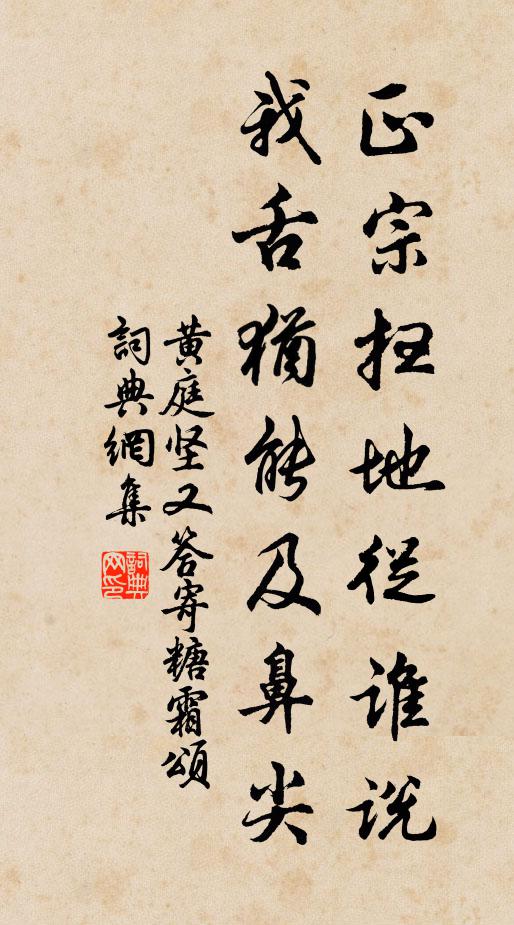 正宗扫地從誰説
我舌猶能及鼻尖
黄庭坚又答寄糖霜頌
詞典網集
詞典網印